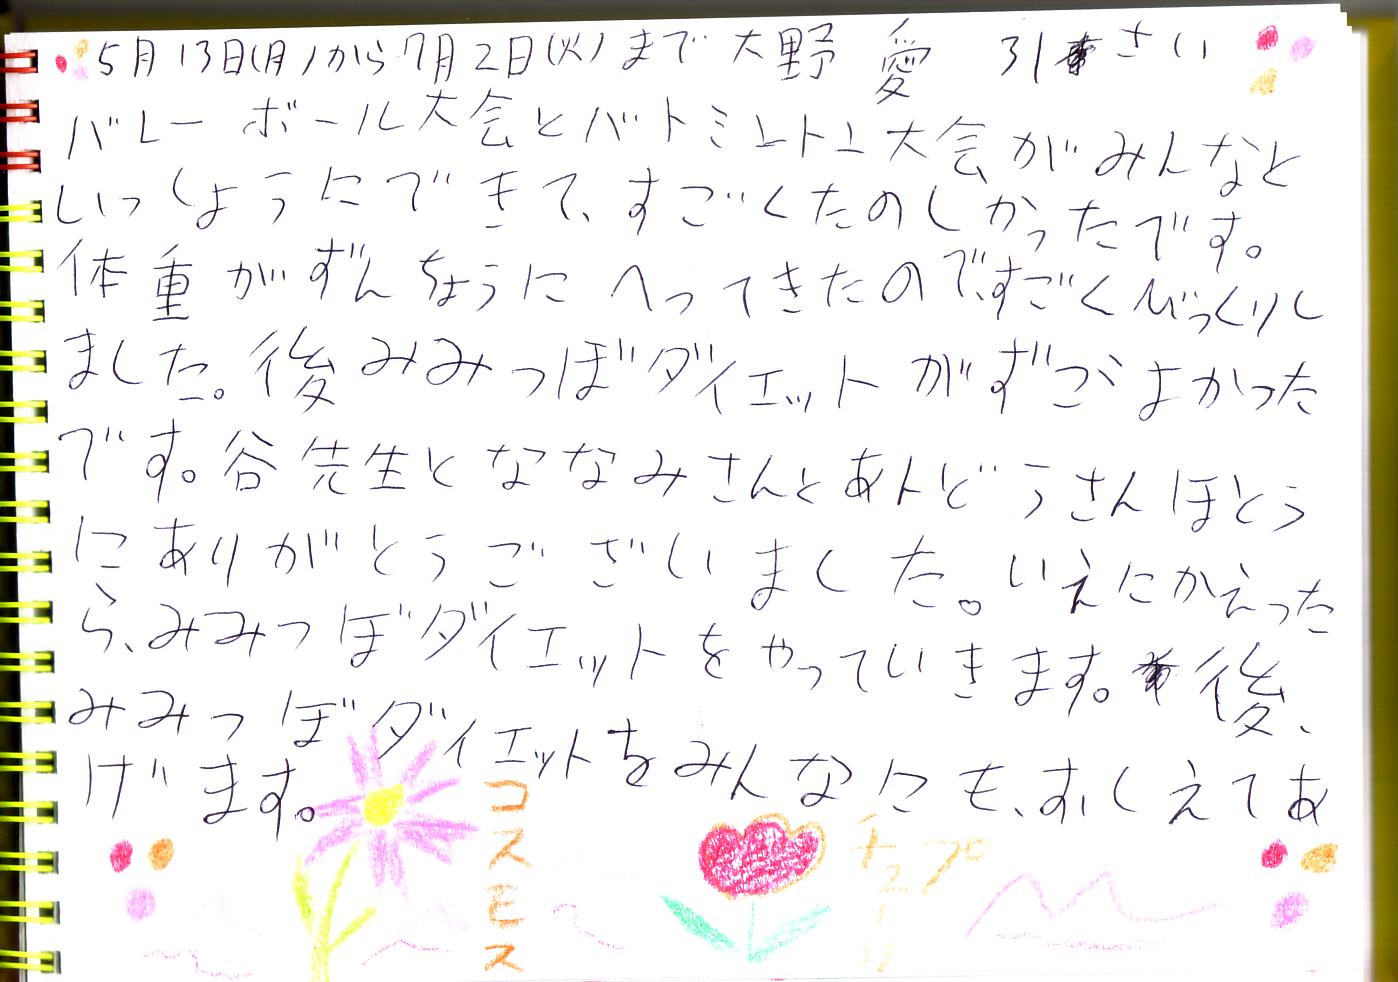 5月13日(月)から7月2日(火)まで大野 愛 31さい
バレーボール大会とバトミントン大会がみんなと
いっしょうにできて、すごくたのしかったです。
体重がずんちょうにへってきたので、すごくびっくりし
ました。後みみつぼダイエットがずごくよかった
です。谷先生とななみさんとあんどうさんほとう
にありがとうございました。いえにかえった
ら、みみつぼダイエットをやっていきます。後、
みみつぼダイエットをみんなにも、おしえてあ
げます。
コスモス
チューリップ